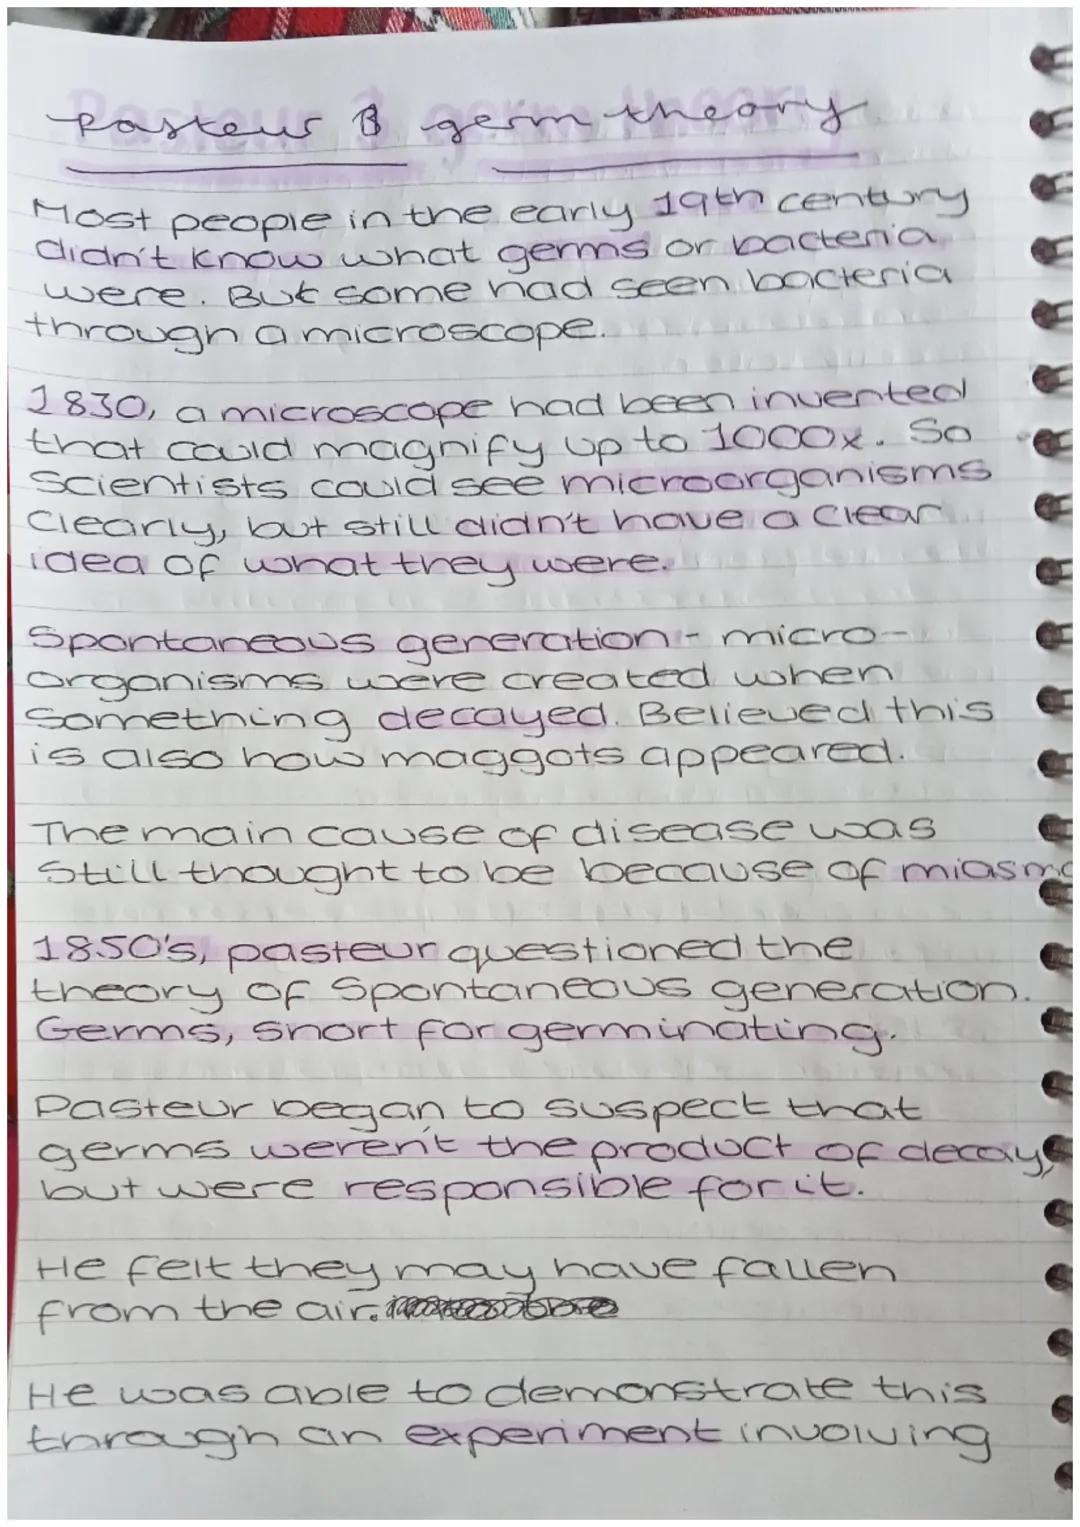 Pasteur & germ theory
Most people in the early 19th century
didn't know what germs or bacteria
were. But some had seen bacteria
through a microscope.
1830, a microscope had been invented
that could magnify up to 1000x. So
Scientists could see microorganisms
clearly, but still didn't have a clear
idea of what they were.
Spontaneous generation - micro-
organisms were created when
something decayed. Believed this
is also how maggots appeared.
The main cause of disease was
still thought to be because of miasma
1850's, pasteur questioned the
theory of Spontaneous generation.
Germs, short for germinating.
Pasteur began to suspect that
germs weren't the product of decay,
but were responsible for it.
He felt they may have fallen
from the air.
He was able to demonstrate this
through an experiment involving